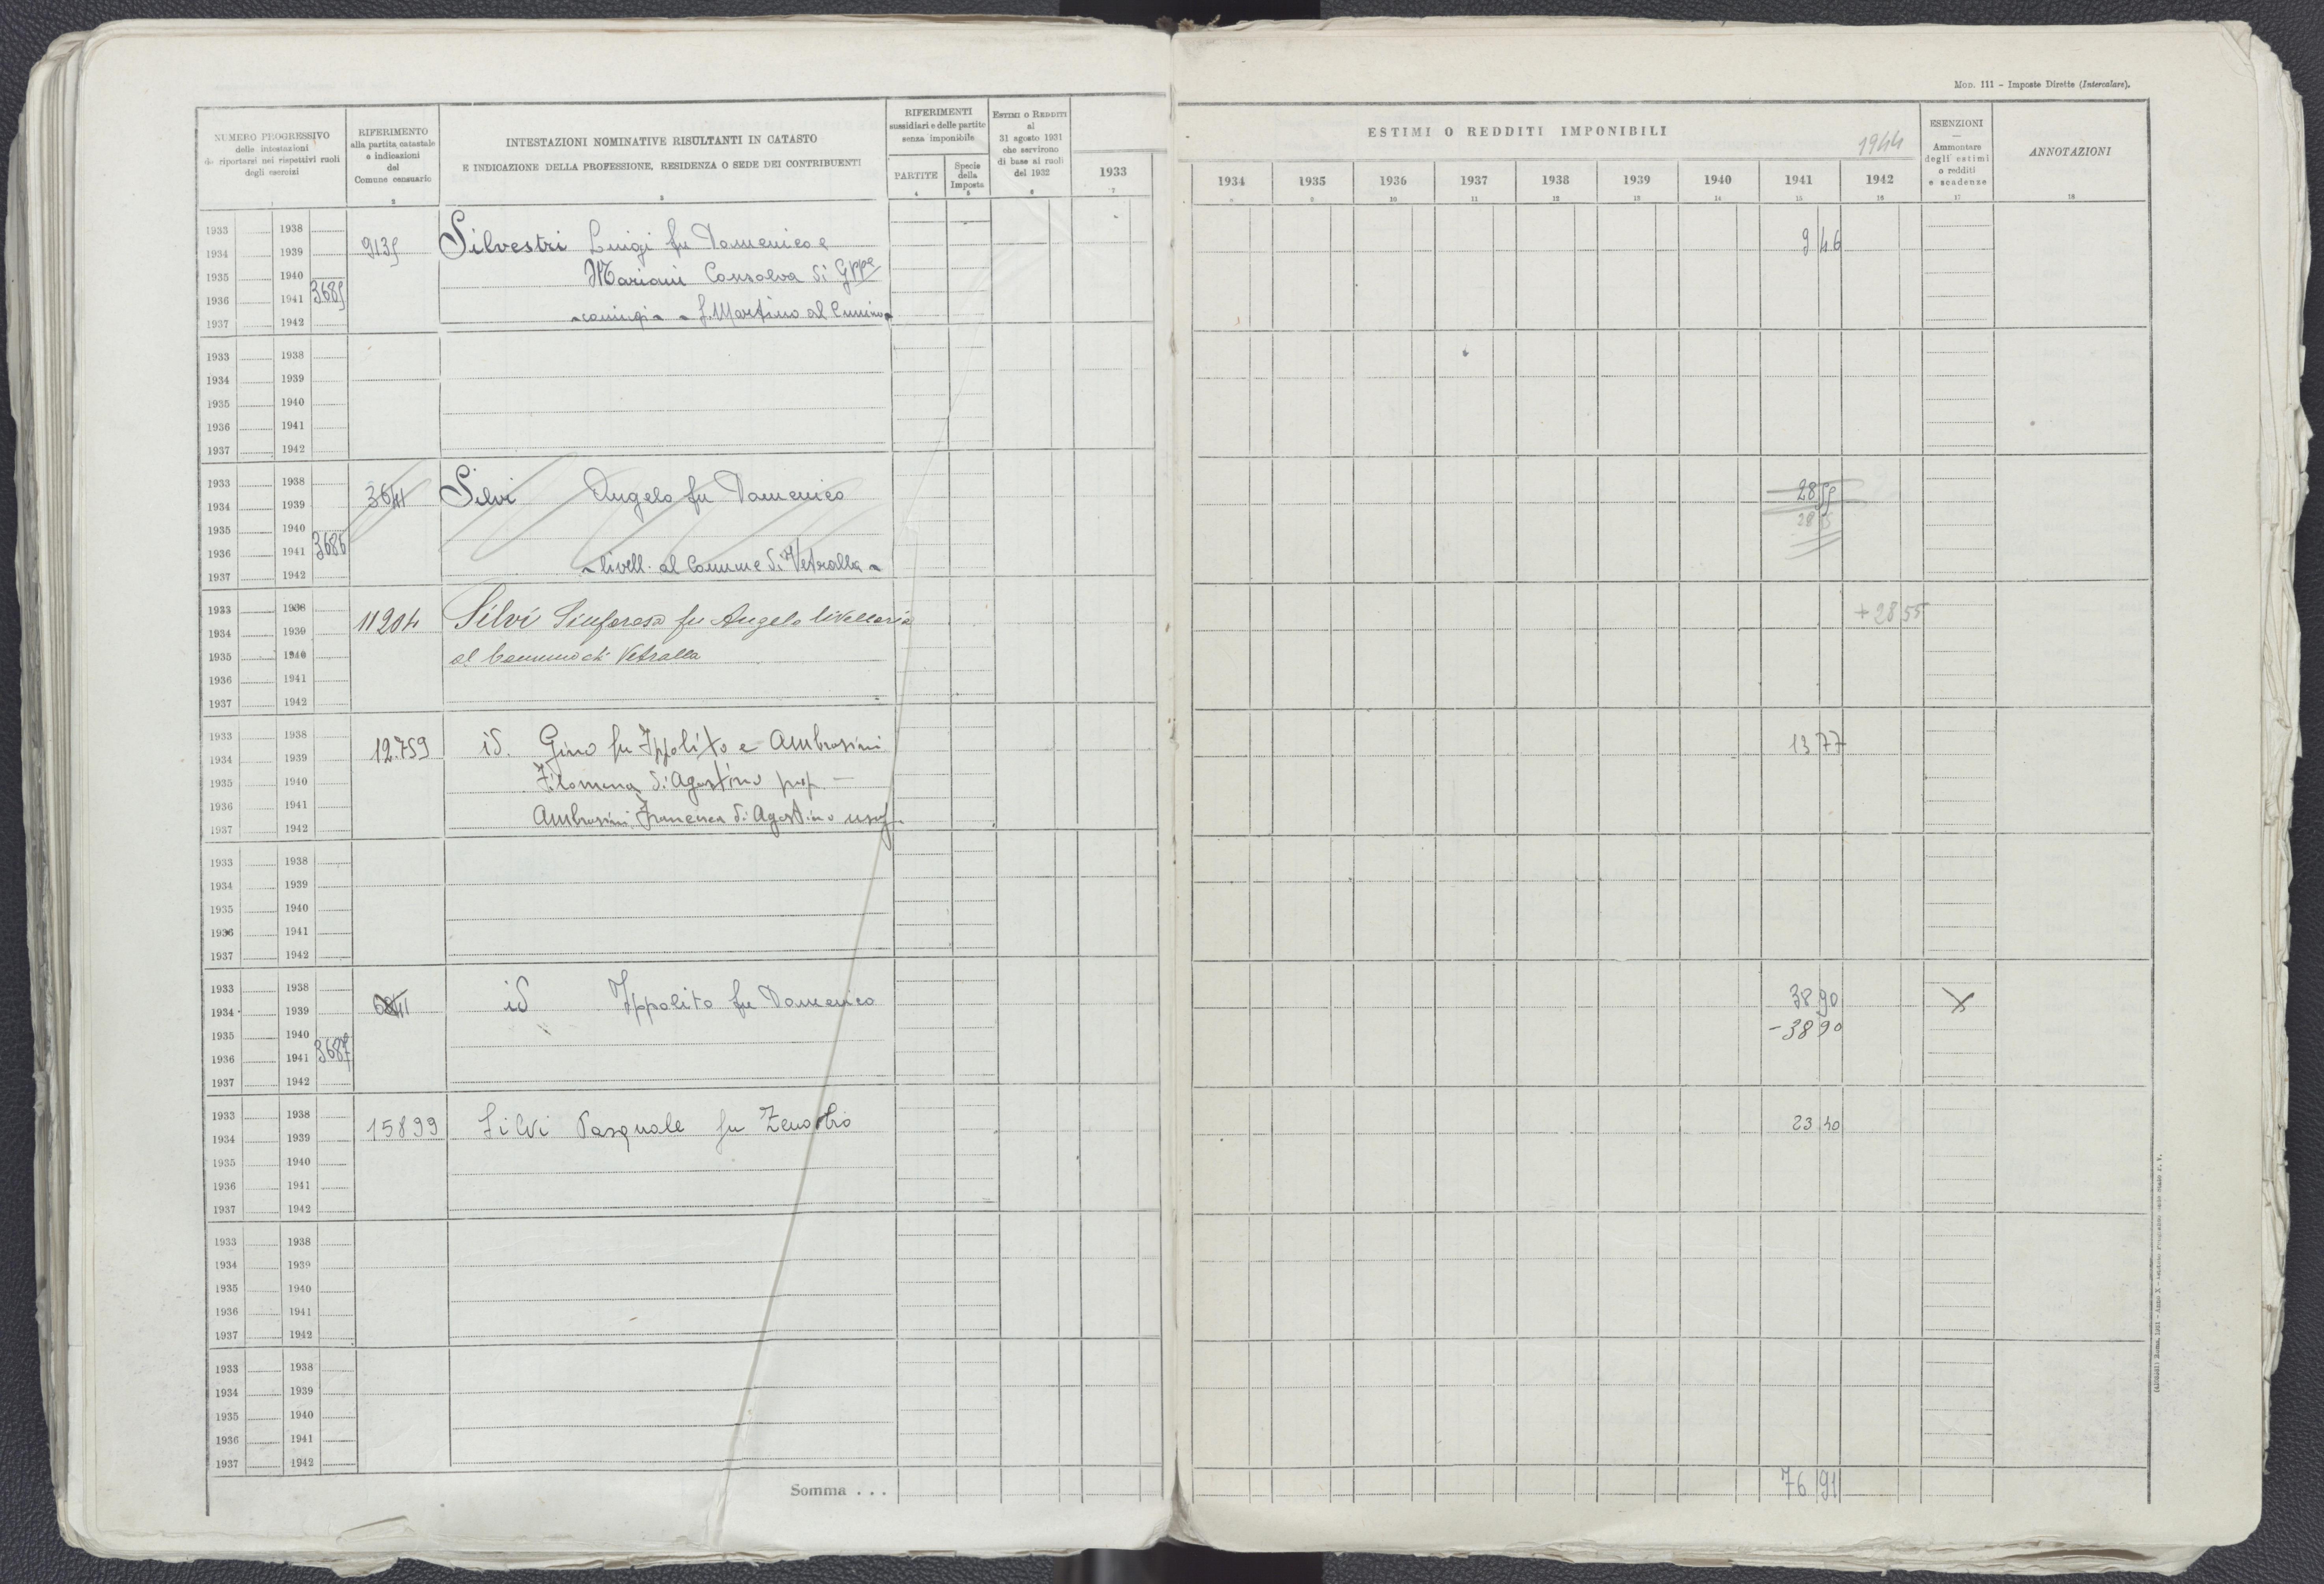 MOD. 111 – Imposte Dirette (Intercalare).
NUMERO PROGRESSIVO
delle intestazioni
da riportarsi nei rispettivi ruoli
degli esercizi
RIFERIMENTO
alla partita catastale
e indicazioni
del
Comune censuario
2
INTESTAZIONI NOMINATIVE RISULTANTI IN CATASTO
E INDICAZIONE DELLA PROFESSIONE, RESIDENZA O SEDE DEI CONTRIBUENTI
3
RIFERIMENTI
sussidiari e delle partite
senza imponibile
PARTITE
4
Specie
della
Imposta
5
ESTIMI O REDDITI
al
31 agosto 1931
che servirono
di base ai ruoli
del 1932
6
1933
7
ESTIMI O REDDITI IMPONIBILI
1944
1934 1935 1936 1937 1938 1939 1940 1941 1942
8 9 10 11 12 13 14 15 16
ESENZIONI
—
Ammontare
degli estimi
o redditi
e scadenze
17
ANNOTAZIONI
18
1933 1938
1934 1939 9135 Silvestri Luigi fu Domenico e 9 46
1935 1940 Mariani Consolva di Gppe
1936 1941 3685
1937 1942 - coniugi - - S. Martino al Cimino -
1933 1938
1934 1939
1935 1940
1936 1941
1937 1942
1933 1938
1934 1939 3641 Silvi Angelo fu Domenico 28 55
1935 1940 28 55
1936 1941 3686
1937 1942 - livell. al Comune di Vetralla -
1933 1938
1934 1939 11204 Silvi Sinforosa fu Angelo livellaria + 28 55
1935 1940 al Comune di Vetralla
1936 1941
1937 1942
1933 1938
1934 1939 12.759 id. Gino fu Ippolito e Ambrosini 13 77
1935 1940 Filomena di Agostino prop. —
1936 1941
1937 1942 Ambrosini Francesca di Agostino usuf.
1933 1938
1934 1939
1935 1940
1936 1941
1937 1942
1933 1938
1934 1939 id Ippolito fu Domenico 38 90 X
1935 1940 - 38 90
1936 1941 3687
1937 1942
1933 1938
1934 1939 15899 Silvi Pasquale fu Zenobio 23 40
1935 1940
1936 1941
1937 1942
1933 1938
1934 1939
1935 1940
1936 1941
1937 1942
1933 1938
1934 1939
1935 1940
1936 1941
1937 1942
Somma . . . 76 91